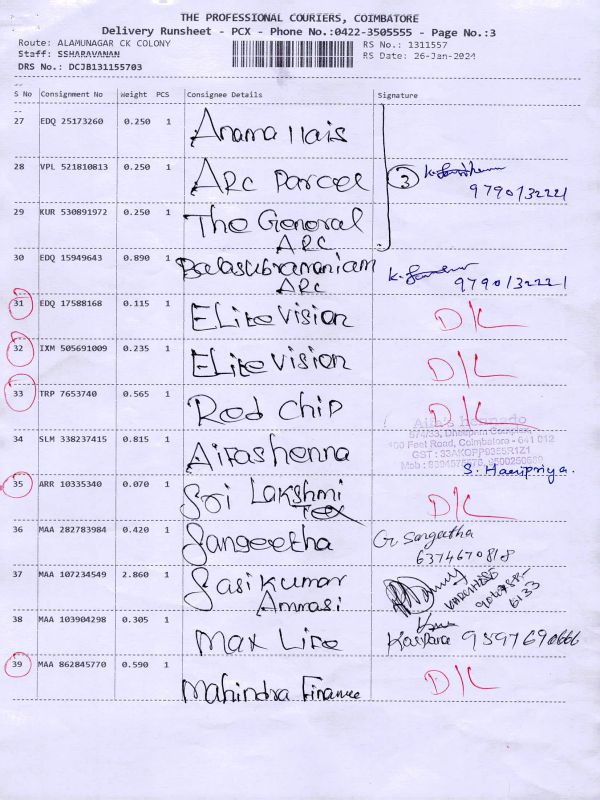 THE PROFESSIONAL COURIERS, COIMBATORE
Delivery Runsheet - PCX - Phone No.:0422-3505555 - Page No.:3
Route: ALAMUNAGAR CK COLONY
RS No.: 1311557
Staff: SSHARAVANAN
RS Date: 26-Jan-2024
DRS No.: DCJB131155703
S No Consignment No Weight PCS Consignee Details Signature
27 EDQ 25173260 0.250 1
28 VPL 521810813 0.250 1 ARC Parcel 3
9790132221
29 KUR 530891972 0.250 1 The General
ARC
30 EDQ 15949643 0.890 1 Balasubramaniam
ARC
9790132221
31 EDQ 17588168 0.115 1 ELite Vision D/L
32 IXM 505691009 0.235 1 ELite Vision D/L
33 TRP 7653740 0.565 1 Red Chip D/L
34 SLM 338237415 0.815 1
Coimbatore - 641 012
S. Haripriya.
35 ARR 10335340 0.070 1 Sri Lakshmi
Tex D/L
36 MAA 282783984 0.420 1 Sangeetha G. Sangeetha
6374670818
37 MAA 107234549 2.860 1 Sasikumar
38 MAA 103904298 0.305 1 Max Life
39 MAA 862845770 0.590 1 Mahindra Finance D/L